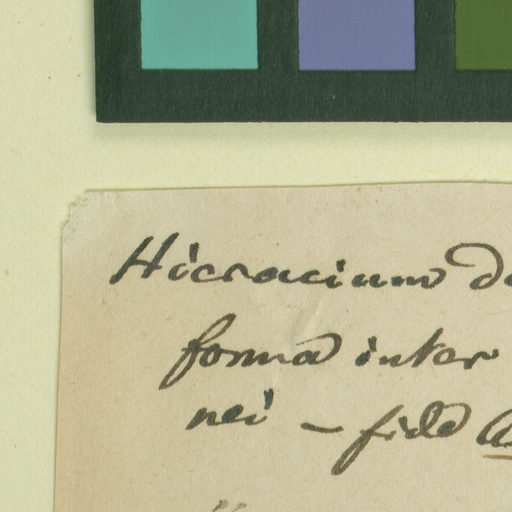 Hieracium
forma inter
nei – fide